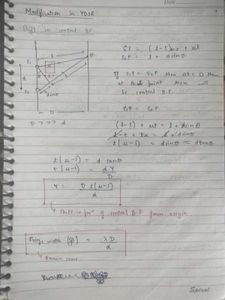 Modification in YDSE
(Ily) in central BF.
S₂P = l + d sinθ
If S₁P = S₂P then Δx = 0 then
at that point there will
be central B.F.
S₁P = S₂P
(l-t) + ut = l + d sinθ
t(u-1) = d sinθ ≈ d tanθ
D >>> d
t(u-1) = d tanθ
t(u-1) = dY/D
Y = D t(u-1)/d
Shift in posⁿ of central B.F from origin
Fringe width (β) = λD/d
Remain same
Spiral